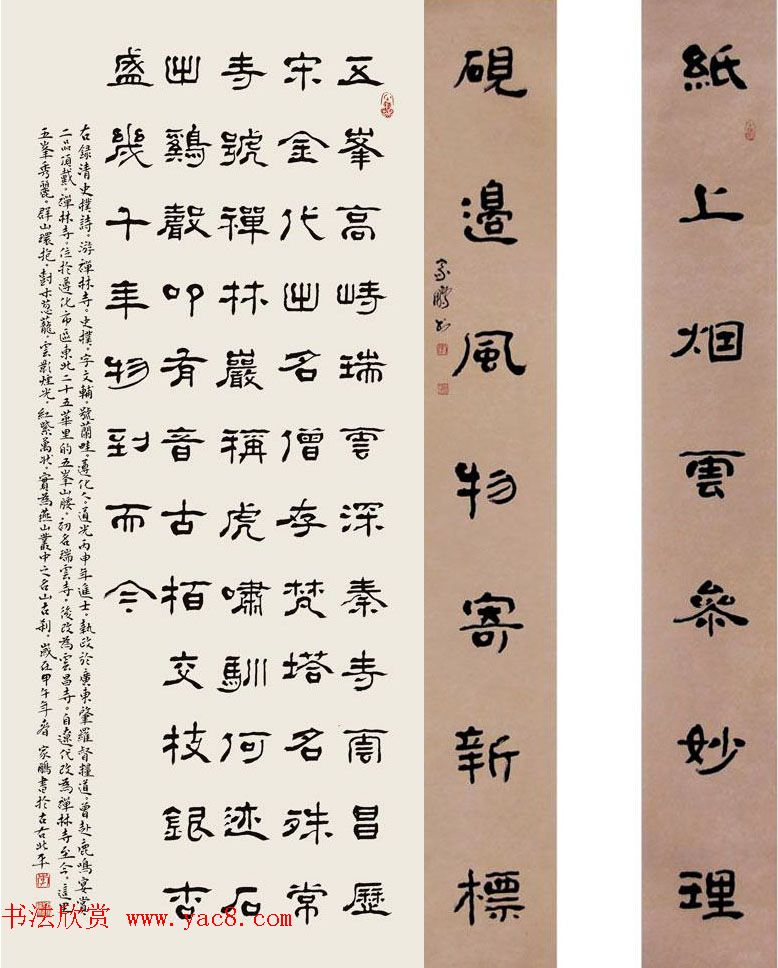 紙上烟雲參妙理
硯邊風物寄新標
家鵬书
五峯高峙瑞雲深秦寺雲昌歷
宋金代出名僧存梵塔名殊常
寺號禪林嚴稱虎嘯馴何迹石
出鷄聲叩有音古栢交枝銀杏
盛幾千年物到而今
右録清史撲詩。游禪林寺。史撲，字文輔，號蘭畦，遵化人。道光丙申年進士。執政於廣東肇羅督糧道，曾赴鹿鳴宴賞
二品頂戴，禪林寺。位於遵化市區東北二十五華里的五峯山腰，初名瑞雲寺，後改為雲昌寺。自遼代改為禪林寺至今。這里
五峯秀麗。群山環抱，樹木葱蘢，雲影煙光，紅紫萬狀，實為燕山叢中之名山古刹，歲在甲午年春 家鵬書於古右北平
书法欣赏 www.yac8.com